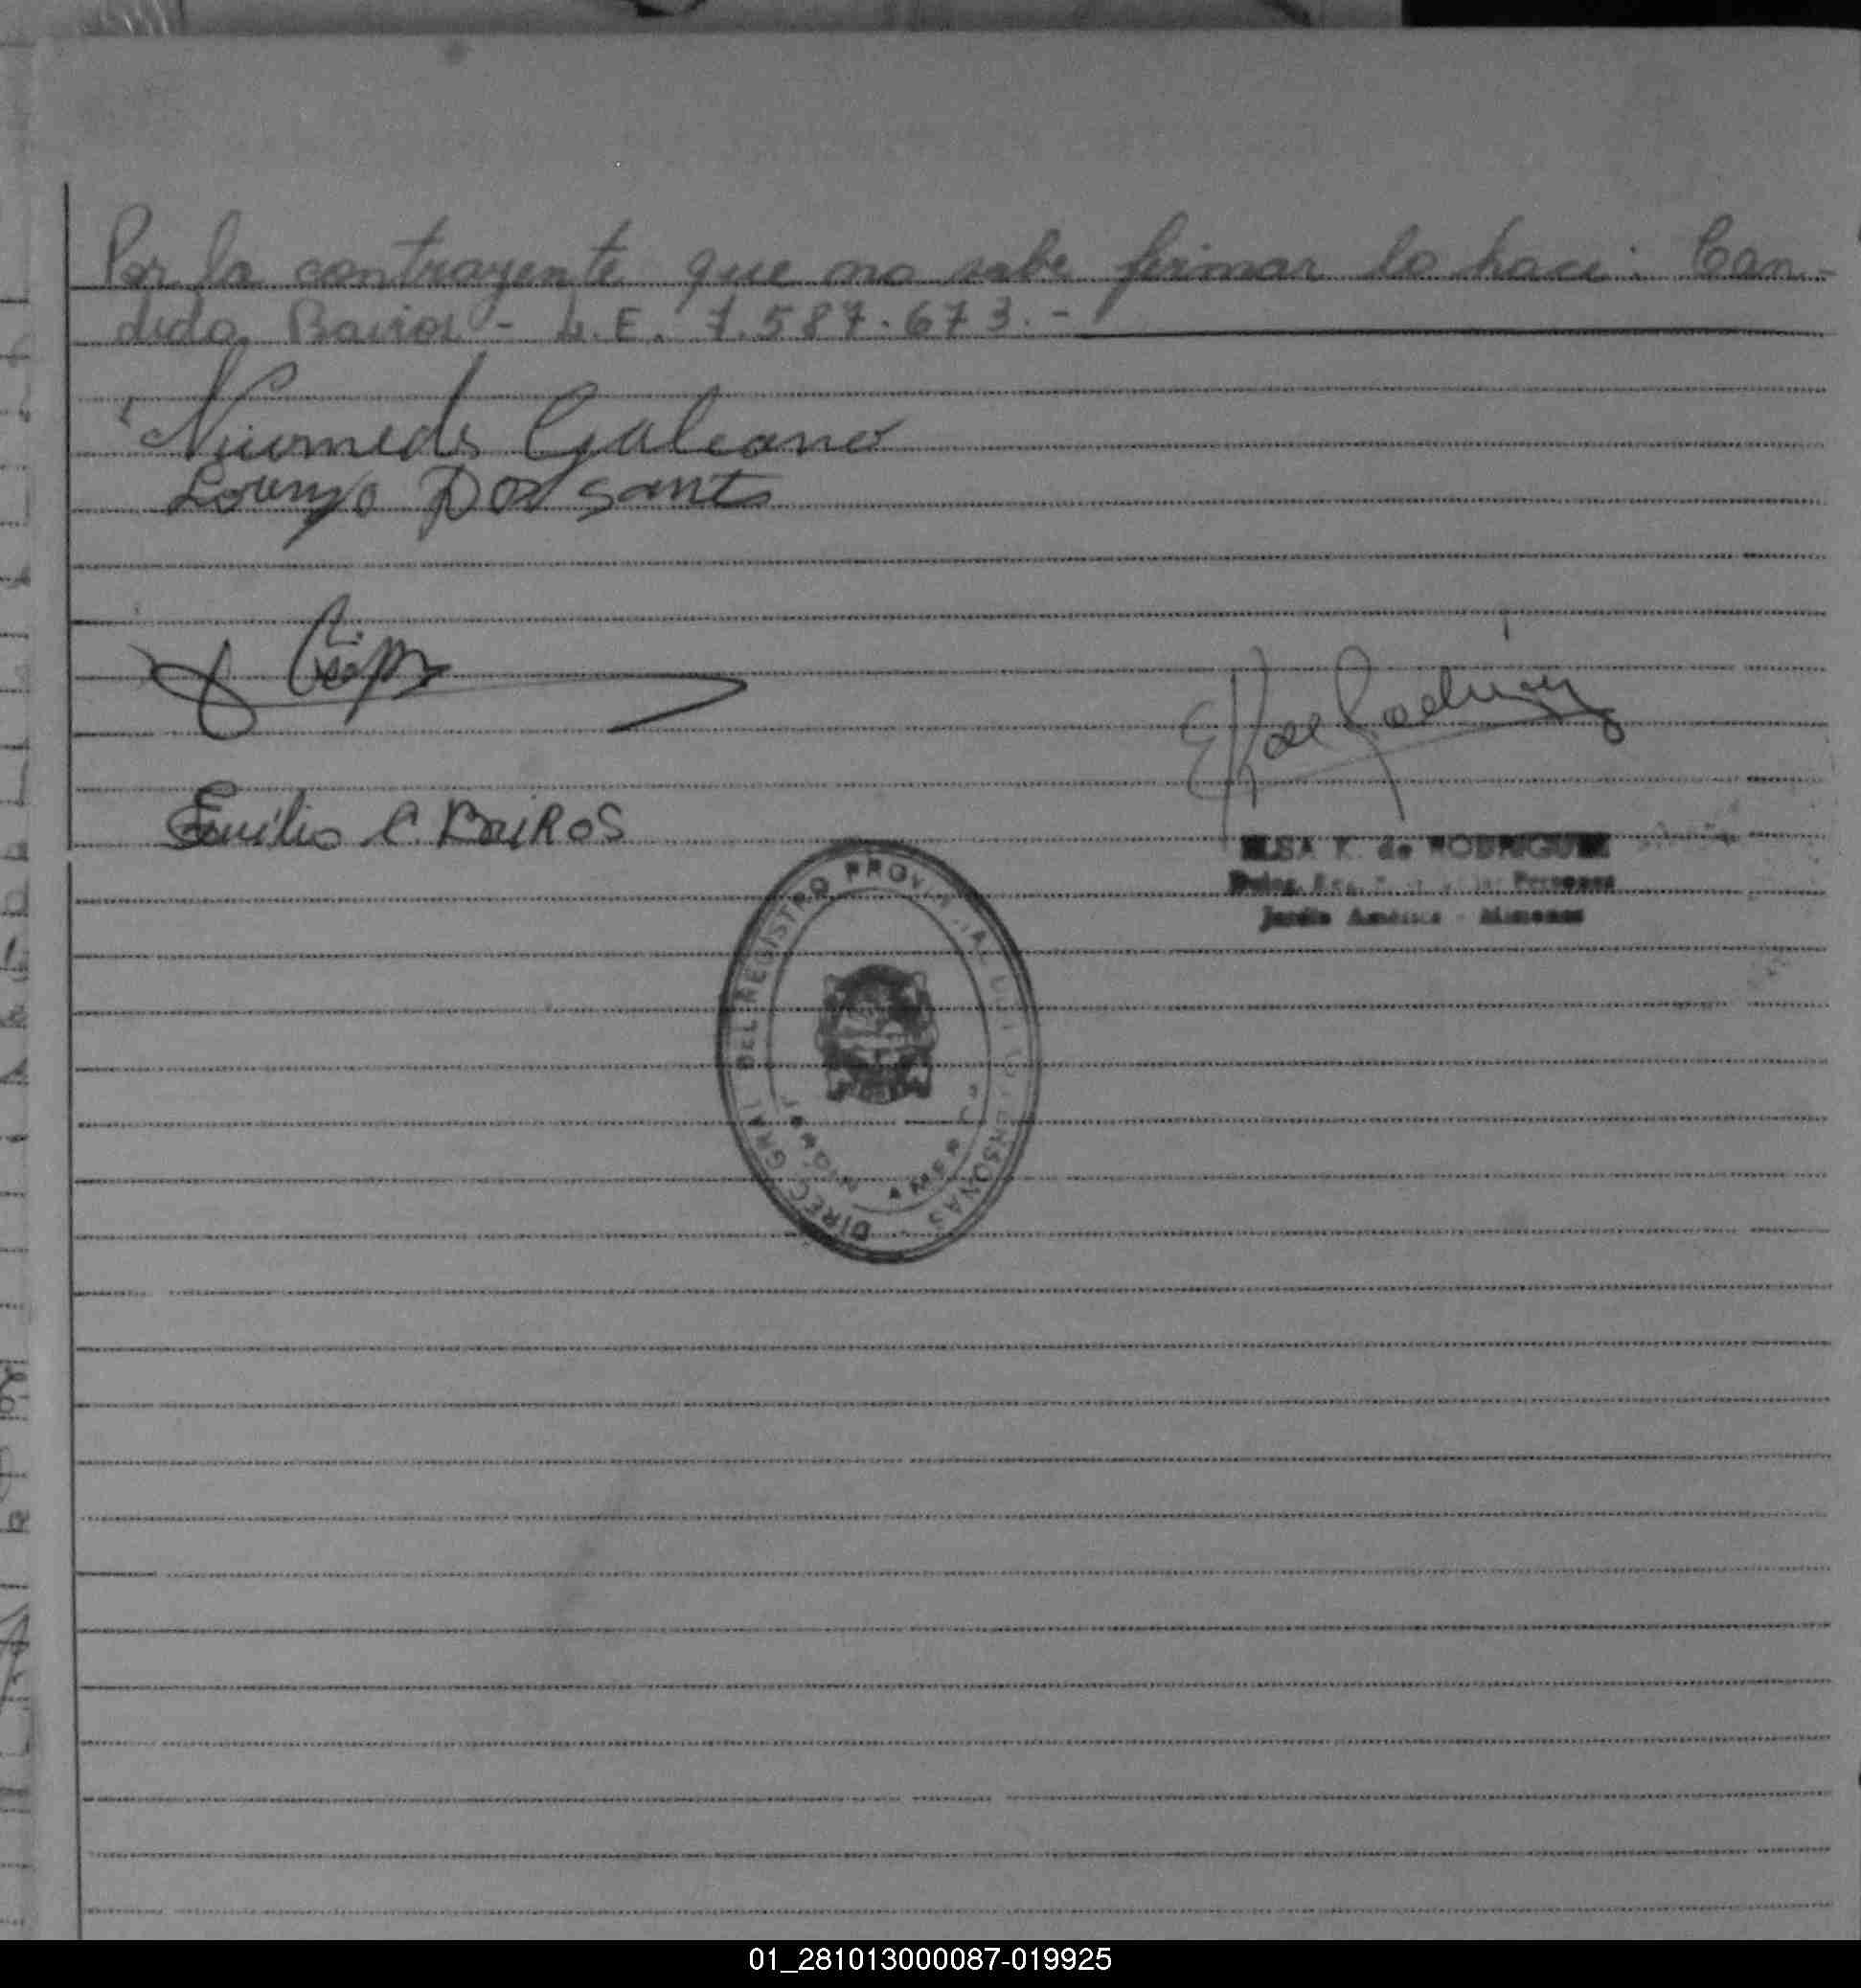 Por la contrayente que no sabe firmar lo hace: Can-
dido Bairos - L.E. 7.587.673.-
Nicomedes Galeano
Lorenzo Dos Santo
Emilio C. BaiRos
ELSA K. de RODRIGUEZ
Personas
Jardín América - Misiones
DIREC. GRAL. DEL REGISTRO PROVINCIAL DE LAS PERSONAS
01_281013000087-019925